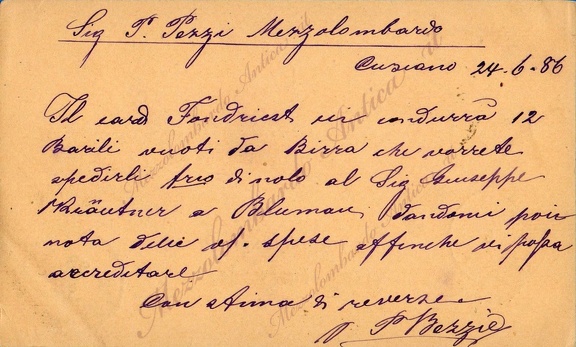 Sig P. Pezzi Mezzolombardo
Cusiano 24.-6.-86
Il card Fondriest vi condurrà 12
Barili vuoti da Birra che vorrete
spedirli frco di nolo al Sig Giuseppe
Kräutner a Blumau, dandomi poi
nota delle vs. spese affinche vi possa
accreditare
Con stima di reverse
P. Bezzi
Mezzolombardo Antica